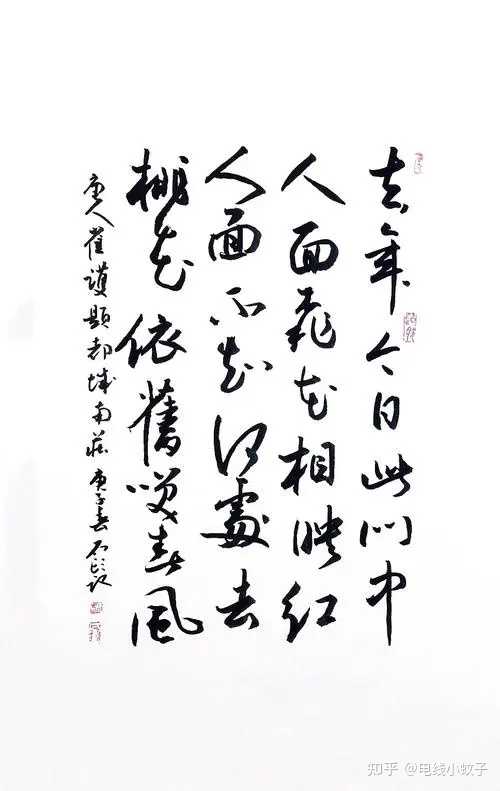 去年今日此门中
人面桃花相映红
人面不知何處去
桃花依舊笑春風
唐人崔護題都城南莊 庚子春 石
知乎 @电线小蚊子